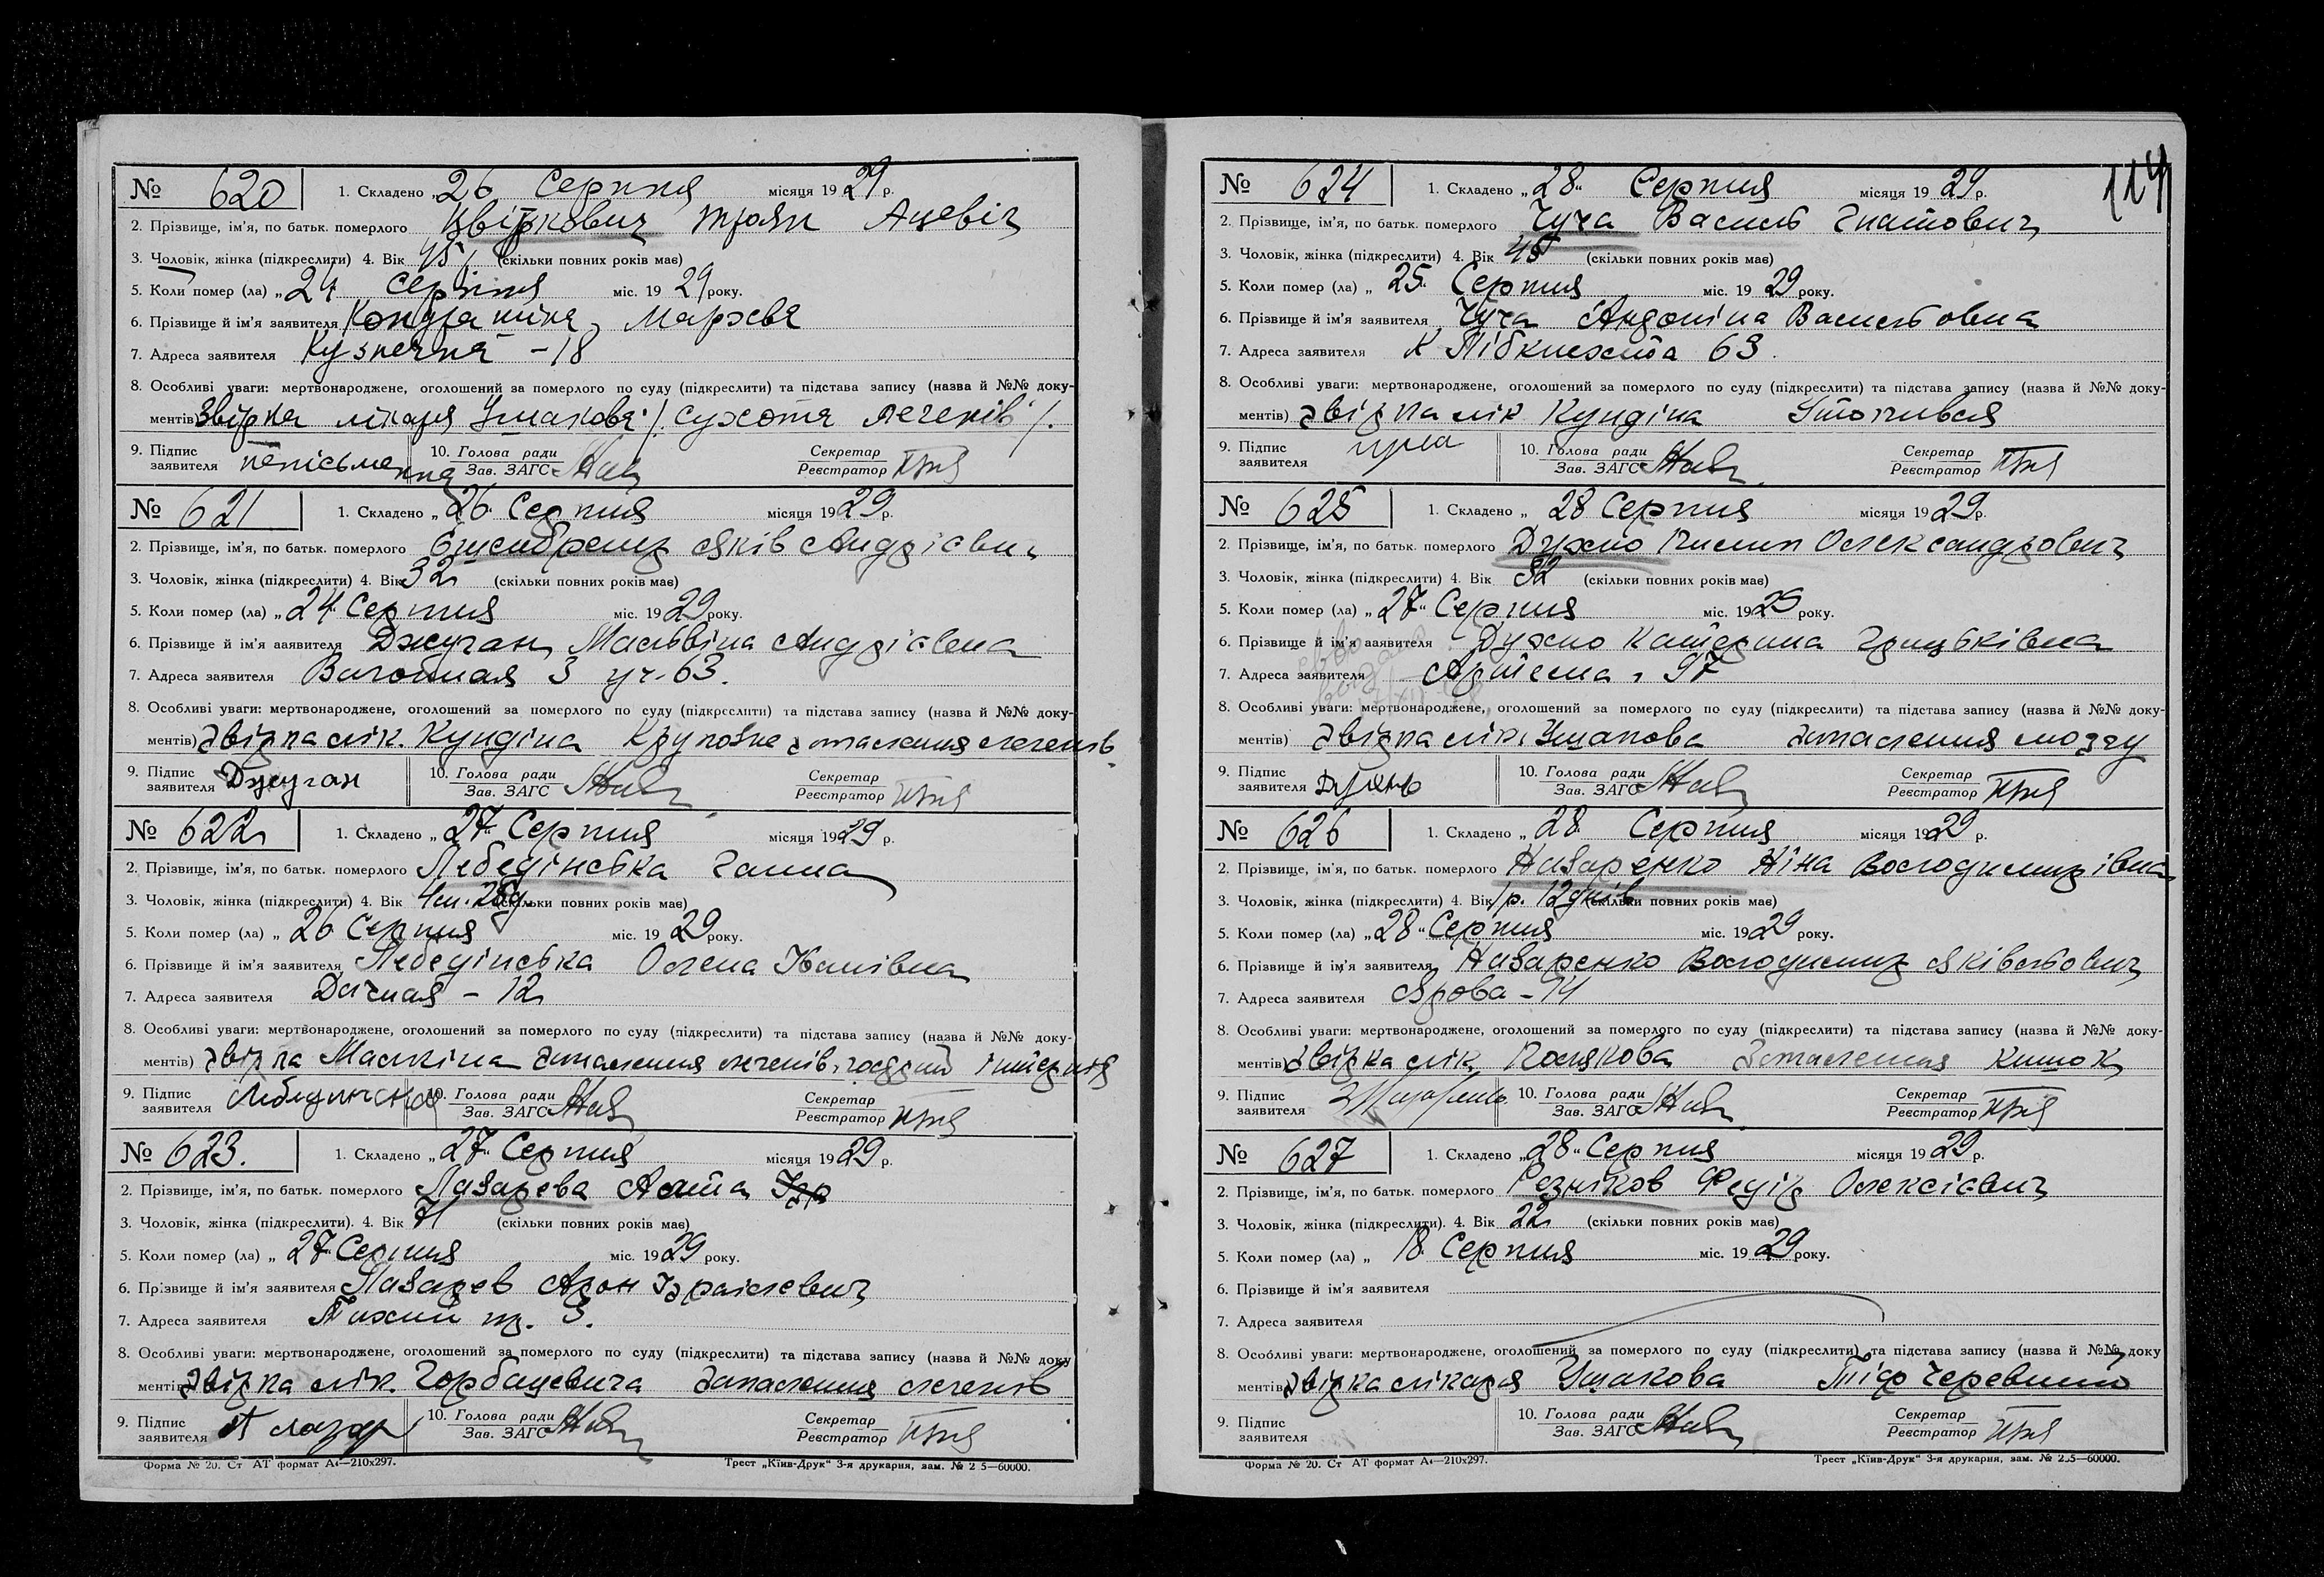 № 620 1. Складено „26 Серпня місяця 1929 р.
2. Прізвище, ім'я, по батьк. померлого Цвіркович Троян Ацевіч
3. Чоловік, жінка (підкреслити) 4. Вік 45 (скільки повних років має)
5. Коли помер (ла) „24 Серпня міс. 1929 року.
6. Прізвище й ім'я заявителя
7. Адреса заявителя Кузнечна -18
8. Особливі уваги: мертвонароджене, оголошений за померлого по суду (підкреслити) та підстава запису (назва й №№ доку-
ментів) Звірка лікаря Ушакова /. сухота легенів /.
9. Підпис заявителя неписьменна 10. Голова ради Зав. ЗАГС Секретар Реєстратор
№ 621 1. Складено „26 Серпня місяця 1929 р.
2. Прізвище, ім'я, по батьк. померлого Яків Андрієвич
3. Чоловік, жінка (підкреслити) 4. Вік 32 (скільки повних років має)
5. Коли помер (ла) „24 Серпня міс. 1929 року.
6. Прізвище й ім'я заявителя Джуган Мальвіна Андріевна
7. Адреса заявителя 3 уч. 63.
8. Особливі уваги: мертвонароджене, оголошений за померлого по суду (підкреслити) та підстава запису (назва й №№ доку-
ментів) Звірка лік. Кундіна Крупозне запалення легенів
9. Підпис заявителя Джуган 10. Голова ради Зав. ЗАГС Секретар Реєстратор
№ 622 1. Складено „27 Серпня місяця 1929 р.
2. Прізвище, ім'я, по батьк. померлого Лебедінська Ганна
3. Чоловік, жінка (підкреслити) 4. Вік (скільки повних років має)
5. Коли помер (ла) „26 Серпня міс. 1929 року.
6. Прізвище й ім'я заявителя Лебедінська Олена Іванівна
7. Адреса заявителя Дачная - 12
8. Особливі уваги: мертвонароджене, оголошений за померлого по суду (підкреслити) та підстава запису (назва й №№ доку-
ментів) Звірка Малкіна запалення легенів,
9. Підпис заявителя Лебединская 10. Голова ради Зав. ЗАГС Секретар Реєстратор
№ 623. 1. Складено „27 Серпня місяця 1929 р.
2. Прізвище, ім'я, по батьк. померлого Лазарева Аліта Ізр
3. Чоловік, жінка (підкреслити). 4. Вік (скільки повних років має)
5. Коли помер (ла) „27 Серпня міс. 1929 року.
6. Прізвище й ім'я заявителя Лазарев Арон Ізраілевич
7. Адреса заявителя Тихий пр. 3.
8. Особливі уваги: мертвонароджене, оголошений за померлого по суду (підкреслити) та підстава запису (назва й №№ доку
ментів) Звірка лік. Горбацевича Запалення легенів
9. Підпис заявителя А Лазар 10. Голова ради Зав. ЗАГС Секретар Реєстратор
Форма № 20. Ст АТ формат А4—210x297. Трест „Київ-Друк" 3-я друкарня, зам. № 2 5—60000.
114
№ 624 1. Складено „28" Серпня місяця 1929 р.
2. Прізвище, ім'я, по батьк. померлого Чуча Василь Гнатович
3. Чоловік, жінка (підкреслити) 4. Вік 45 (скільки повних років має)
5. Коли помер (ла) „ 25 Серпня міс. 1929 року.
6. Прізвище й ім'я заявителя Чуча Андоніна Васильовна
7. Адреса заявителя К Лібкнехта 63.
8. Особливі уваги: мертвонароджене, оголошений за померлого по суду (підкреслити) та підстава запису (назва й №№ доку-
ментів) Звірка лік Кундіна Утопився
9. Підпис заявителя 10. Голова ради Зав. ЗАГС Секретар Реєстратор
№ 625 1. Складено „ 28 Серпня місяця 1929 р.
2. Прізвище, ім'я, по батьк. померлого Духно Пилип Олександрович
3. Чоловік, жінка (підкреслити) 4. Вік 32 (скільки повних років має)
5. Коли помер (ла) „27" Серпня міс. 1929 року.
6. Прізвище й ім'я заявителя Духно Катерина Грицьківна
7. Адреса заявителя Артема, 97
8. Особливі уваги: мертвонароджене, оголошений за померлого по суду (підкреслити) та підстава запису (назва й №№ доку-
ментів) Звірка лік. Ушакова Запалення мозгу
9. Підпис заявителя Духно 10. Голова ради Зав. ЗАГС Секретар Реєстратор
№ 626 1. Складено „28 Серпня місяця 1929 р.
2. Прізвище, ім'я, по батьк. померлого Назаренко Ніна Володимирівна
3. Чоловік, жінка (підкреслити) 4. Вік 1р. 12 днів (скільки повних років має)
5. Коли помер (ла) „28" Серпня міс. 1929 року.
6. Прізвище й ім'я заявителя Назаренко Володимир Яківльович
7. Адреса заявителя Ярова - 94
8. Особливі уваги: мертвонароджене, оголошений за померлого по суду (підкреслити) та підстава запису (назва й №№ доку-
ментів) Звірка лік. Полякова Запалення кишок
9. Підпис заявителя 10. Голова ради Зав. ЗАГС Секретар Реєстратор
№ 627 1. Складено „28" Серпня місяця 1929 р.
2. Прізвище, ім'я, по батьк. померлого Резніков Федір Олексієвич
3. Чоловік, жінка (підкреслити). 4. Вік 22 (скільки повних років має)
5. Коли помер (ла) „ 18 Серпня міс. 1929 року.
6. Прізвище й ім'я заявителя
7. Адреса заявителя
8. Особливі уваги: мертвонароджене, оголошений за померлого по суду (підкреслити) та підстава запису (назва й №№ доку
ментів) Звірка лікаря Ушакова Тіф черевний
9. Підпис заявителя 10. Голова ради Зав. ЗАГС Секретар Реєстратор
Форма № 20. Ст АТ формат А4—210x297. Трест „Київ-Друк" 3-я друкарня, зам. № 2.5—60000.